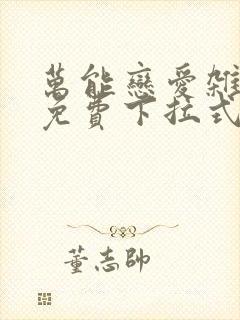 萬能戀愛雜
免費下拉式
董志帥